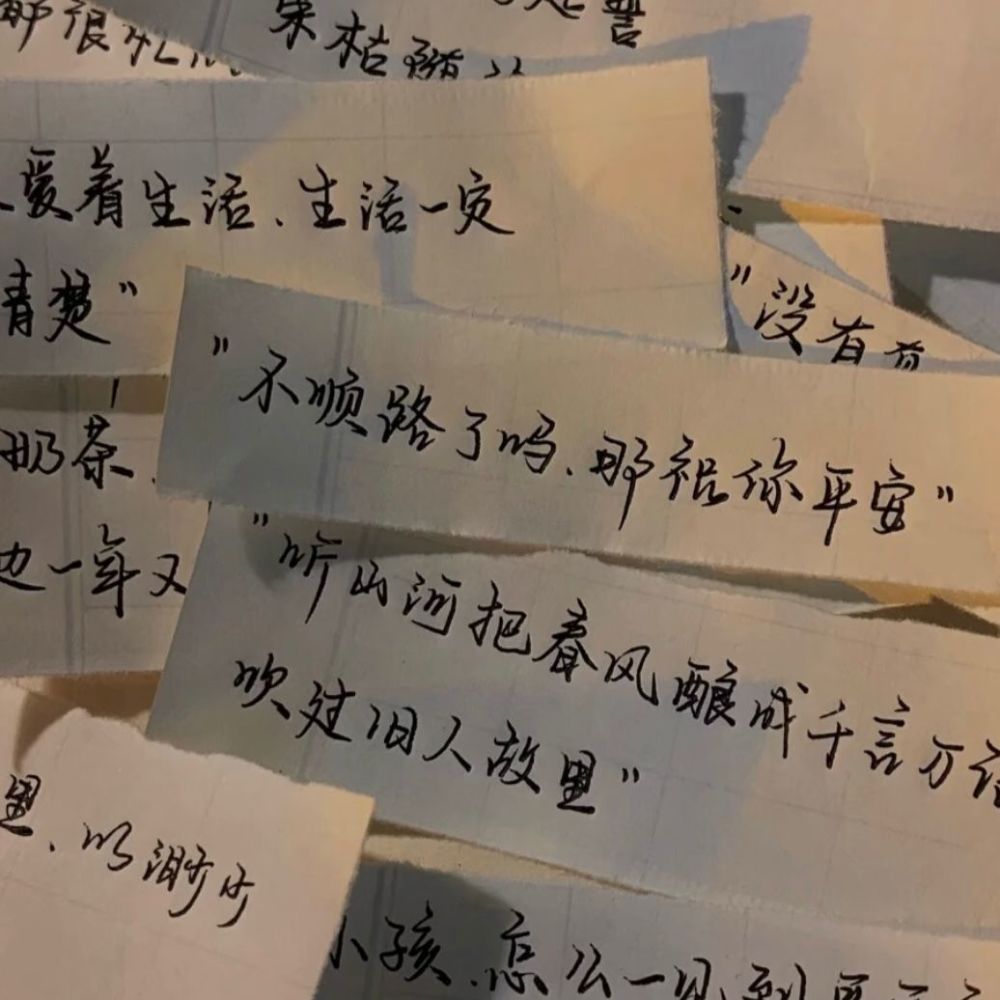 那很
果枯
爱着生活、生活一定
清楚”
“没有
奶茶
“不顺路了吗、那祝你平安”
边一年又
“听山河把春风酿成千言万语
吹过旧人故里”
里、以渺
小孩、怎么一见到